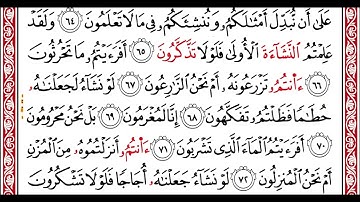 عَلَىٰٓ أَن نُّبَدِّلَ أَمْثَٰلَكُمُۥ وَنُنشِئَكُمُۥ فِي مَا لَا تَعْلَمُونَ ٦٤ وَلَقَدْ
عَلِمْتُمُ ٱلنَّشَآءَةَ ٱلْأُولَىٰ فَلَوْلَا تَذَّكَّرُونَ ٦٥ أَفَرَءَيْتُمُۥ مَا تَحْرُثُونَ
٦٦ ءَأَنتُمُۥ تَزْرَعُونَهُۥٓ أَمْ نَحْنُ ٱلزَّٰرِعُونَ ٦٧ لَوْ نَشَآءُ لَجَعَلْنَٰهُ
حُطَٰمًا فَظَلْتُمُۥ تَفَكَّهُونَ ٦٨ إِنَّا لَمُغْرَمُونَ ٦٩ بَلْ نَحْنُ مَحْرُومُونَ
٧٠ أَفَرَءَيْتُمُ ٱلْمَآءَ ٱلَّذِي تَشْرَبُونَ ٧١ ءَأَنتُمُۥٓ أَنزَلْتُمُوهُ مِنَ ٱلْمُزْنِ
أَمْ نَحْنُ ٱلْمُنزِلُونَ ٧٢ لَوْ نَشَآءُ جَعَلْنَٰهُ أُجَاجًا فَلَوْلَا تَشْكُرُونَ